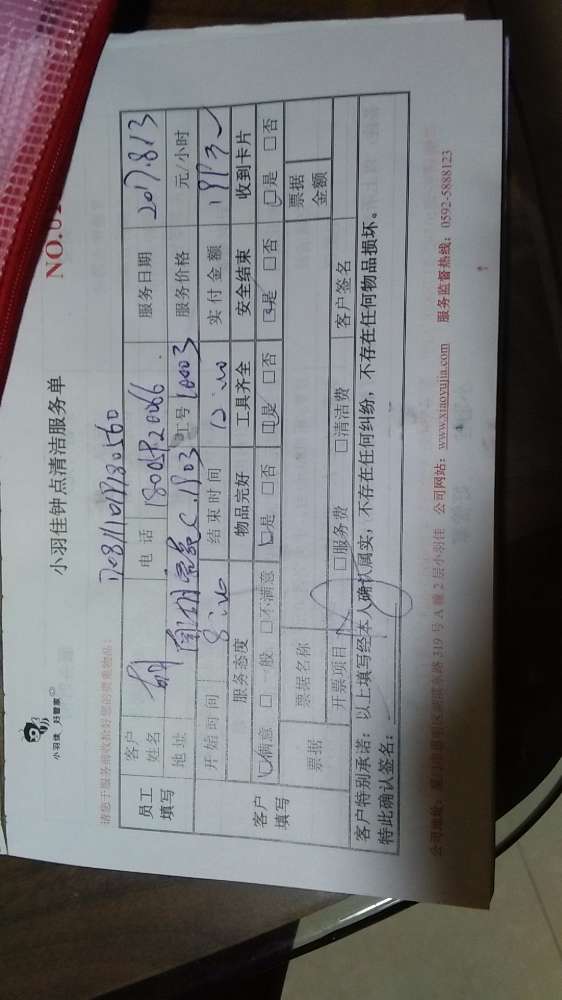 小羽佳 好管家
小羽佳钟点清洁服务单
NO.01
请您于服务前收拾好您的贵重物品:
员工填写 客户姓名 胡 电话 服务日期 2017.8.13
地址 工号 10003 服务价格 元/小时
开始时间 8:00 结束时间 12:00 实付金额
客户填写 服务态度 物品完好 工具齐全 安全结束 收到卡片
□满意 □一般 □不满意 □是 □否 □是 □否 □是 □否 □是 □否
票据 票据名称 票据金额
开票项目 □服务费 □清洁费 客户签名
客户特别承诺:以上填写经本人确认属实,不存在任何纠纷,不存在任何物品损坏。
特此确认签名:
319号A幢2层小羽佳 公司网站:www.xiaoyujia.com 服务监督热线:0592-5888123